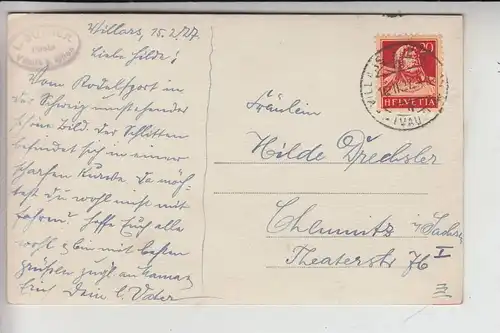 Villars, 15.2/27.
Liebe Hilde!
Vom Rodelsport in
der Schweiz umstehender
schön Bild. Der Schlitten
befindet sich in einer
scharfen Kurve. Da möch-
test Du wohl nicht mit
fahren! Hoffe Euch alle
wohl & bin mit besten
Grüßen zugl. an Mama
Dein l. Vater
20
HELVETIA
VILLARS
(VAUD)
Fräulein
Hilde Drechsler
Chemnitz i/Sachsen
Theaterstr 76 I